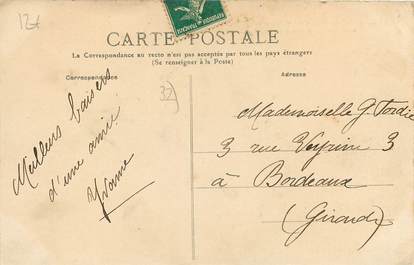 12€
CARTE POSTALE
La Correspondance au recto n'est pas acceptée par tous les pays étrangers
(Se renseigner à la Poste)
Correspondance
Adresse
32
Meilleurs baisers
d'une amie
Yvonne
Mademoiselle G.
3 rue 3
à Bordeaux
(Gironde)